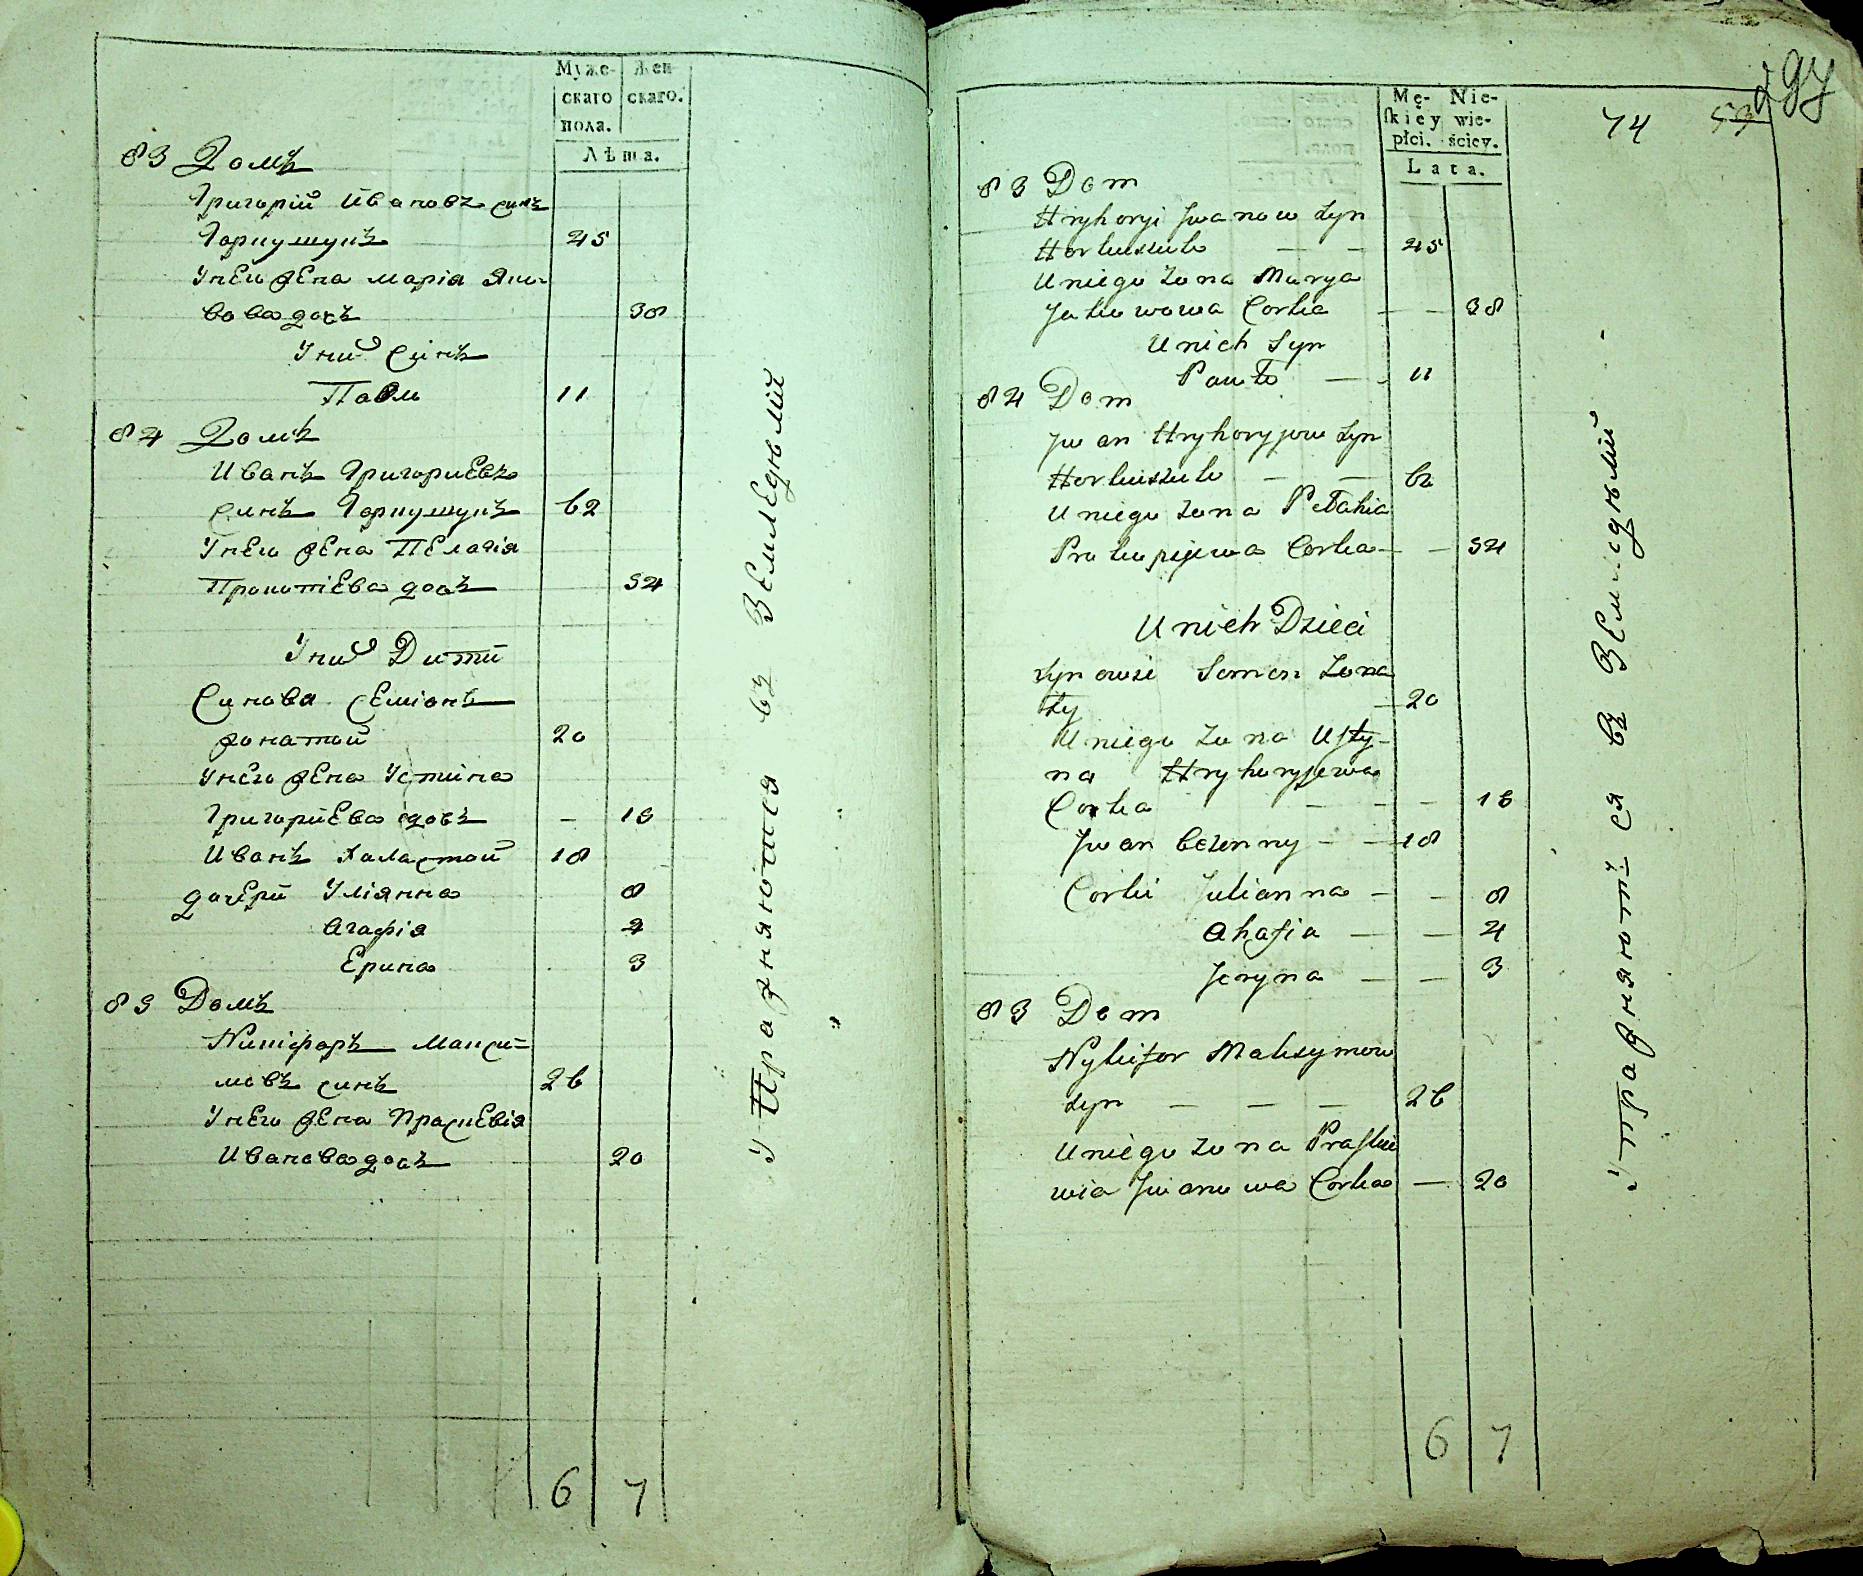 Муже- Жен-
скаго скаго.
пола.
Лѣта.
83 Домъ
Григорій Ивановъ синъ
Горкушукъ 45
Унего жена Марія Яко-
вова дочъ 38
Уних синъ
Павло 11
84 Домъ
Иванъ Григориевъ
синъ Горкушукъ 62
Унего жена Пелагія
Прокопіева дочъ 54
Уних Дити
Синова Семіонъ
жонатой 20
Унего жена Устина
Григориева дочъ – 16
Иванъ Халастой 18
дочери Улiянна 8
Агафія 4
Ерина 3
85 Домъ
Никіфоръ Макси=
мовъ синъ 26
Унего жена Праскевія
Иванова дочъ 20
6 7
Упражняются въ Земледѣлій
297
74 53
Mę- Nie-
skiey wie-
płci. ściey.
Lata.
83 Dom
Hryhoryi Jwanow Syn
Horkuszuk — — 45
Uniego Zona Marya
Jakowowa Corka — — 38
Unich Syn
Pawło — — 11
84 Dom
Jwan Hryhoryjow Syn
Horkuszuk — — 62
Uniego Zona Pełahia
Prokopijewa Corka — — 54
Unich Dzieci
Synowie Semen Zona
ty — 20
Uniego Zona Usty-
na Hryhoryjewa
Corka — — — 16
Jwan bezenny — — 18
Corki Julianna — — 8
Ahafia — — 4
Jeryna — — 3
85 Dom
Nykifor Maksymow
Syn — — — 26
Uniego Zona Praske
wia Jwanowa Corka — 20
6 7
Упражняют=ся въ Земледѣлій